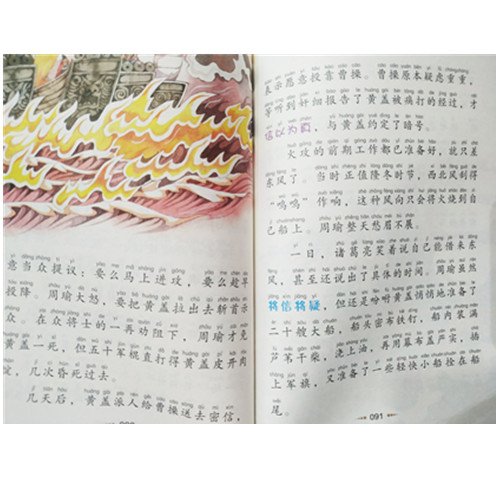 意当众提议：要么马上进攻，要么趁早
投降。周瑜大怒，要把黄盖拉出去斩首示
众。在众将士的一再劝阻下，周瑜才免
黄盖一死，但五十军棍直打得黄盖皮开肉
绽，几次昏死过去。
几天后，黄盖派人给曹操送去密信，
表示愿意投靠曹操。曹操原本疑虑重重，
等听到奸细报告了黄盖被痛打的经过，才
信以为真，与黄盖约定了暗号。
火攻的前期工作都已准备好，就只差
东风了。当时正值隆冬时节，西北风刮得
“呜呜”作响，这种风向只会将火烧到自
己船上。周瑜整天愁眉不展。
一日，诸葛亮笑着说自己能借来东
风，甚至还说出了具体的时间。周瑜虽然
将信将疑，但还是吩咐黄盖悄悄地准备了
二十艘大船，船头密布铁钉，船内装满
芦苇干柴，浇上油，再用幕布盖严实，插
上军旗，又准备了一些轻快小船拴在船
尾。
091